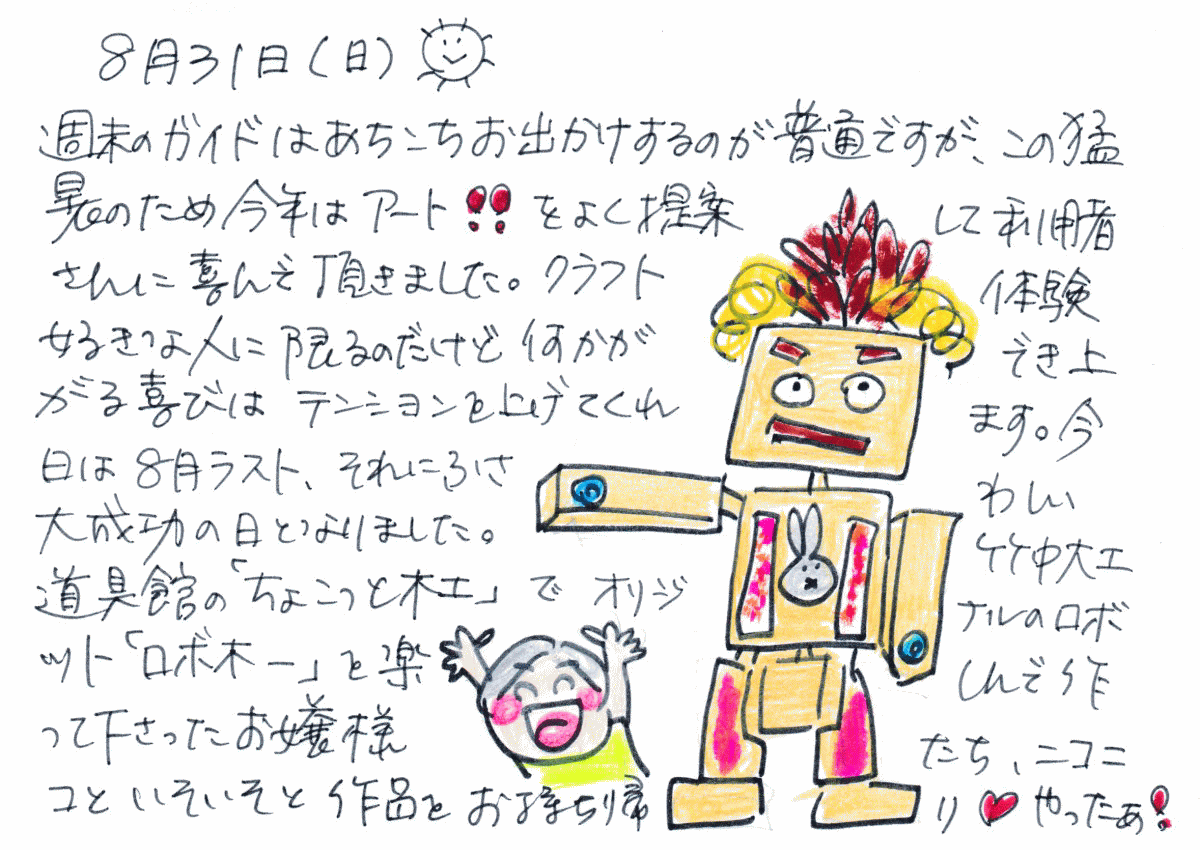 8月31日(日)
週末のガイドはあちこちお出かけするのが普通ですが、この猛
暑のため今年はアート!!をよく提案して利用者
さんに喜んで頂きました。クラフト体験
好きな人に限るのだけど何かができ上
がる喜びはテンションを上げてくれます。今
日は8月ラスト、それにふさわしい
大成功の日となりました。竹中大工
道具館の「ちょこっと木工」でオリジナルのロボ
ット「ロボ木ー」を楽しんで作
って下さったお嬢様たち、ニコニ
コといそいそと作品をお持ち帰り♥やったぁ!